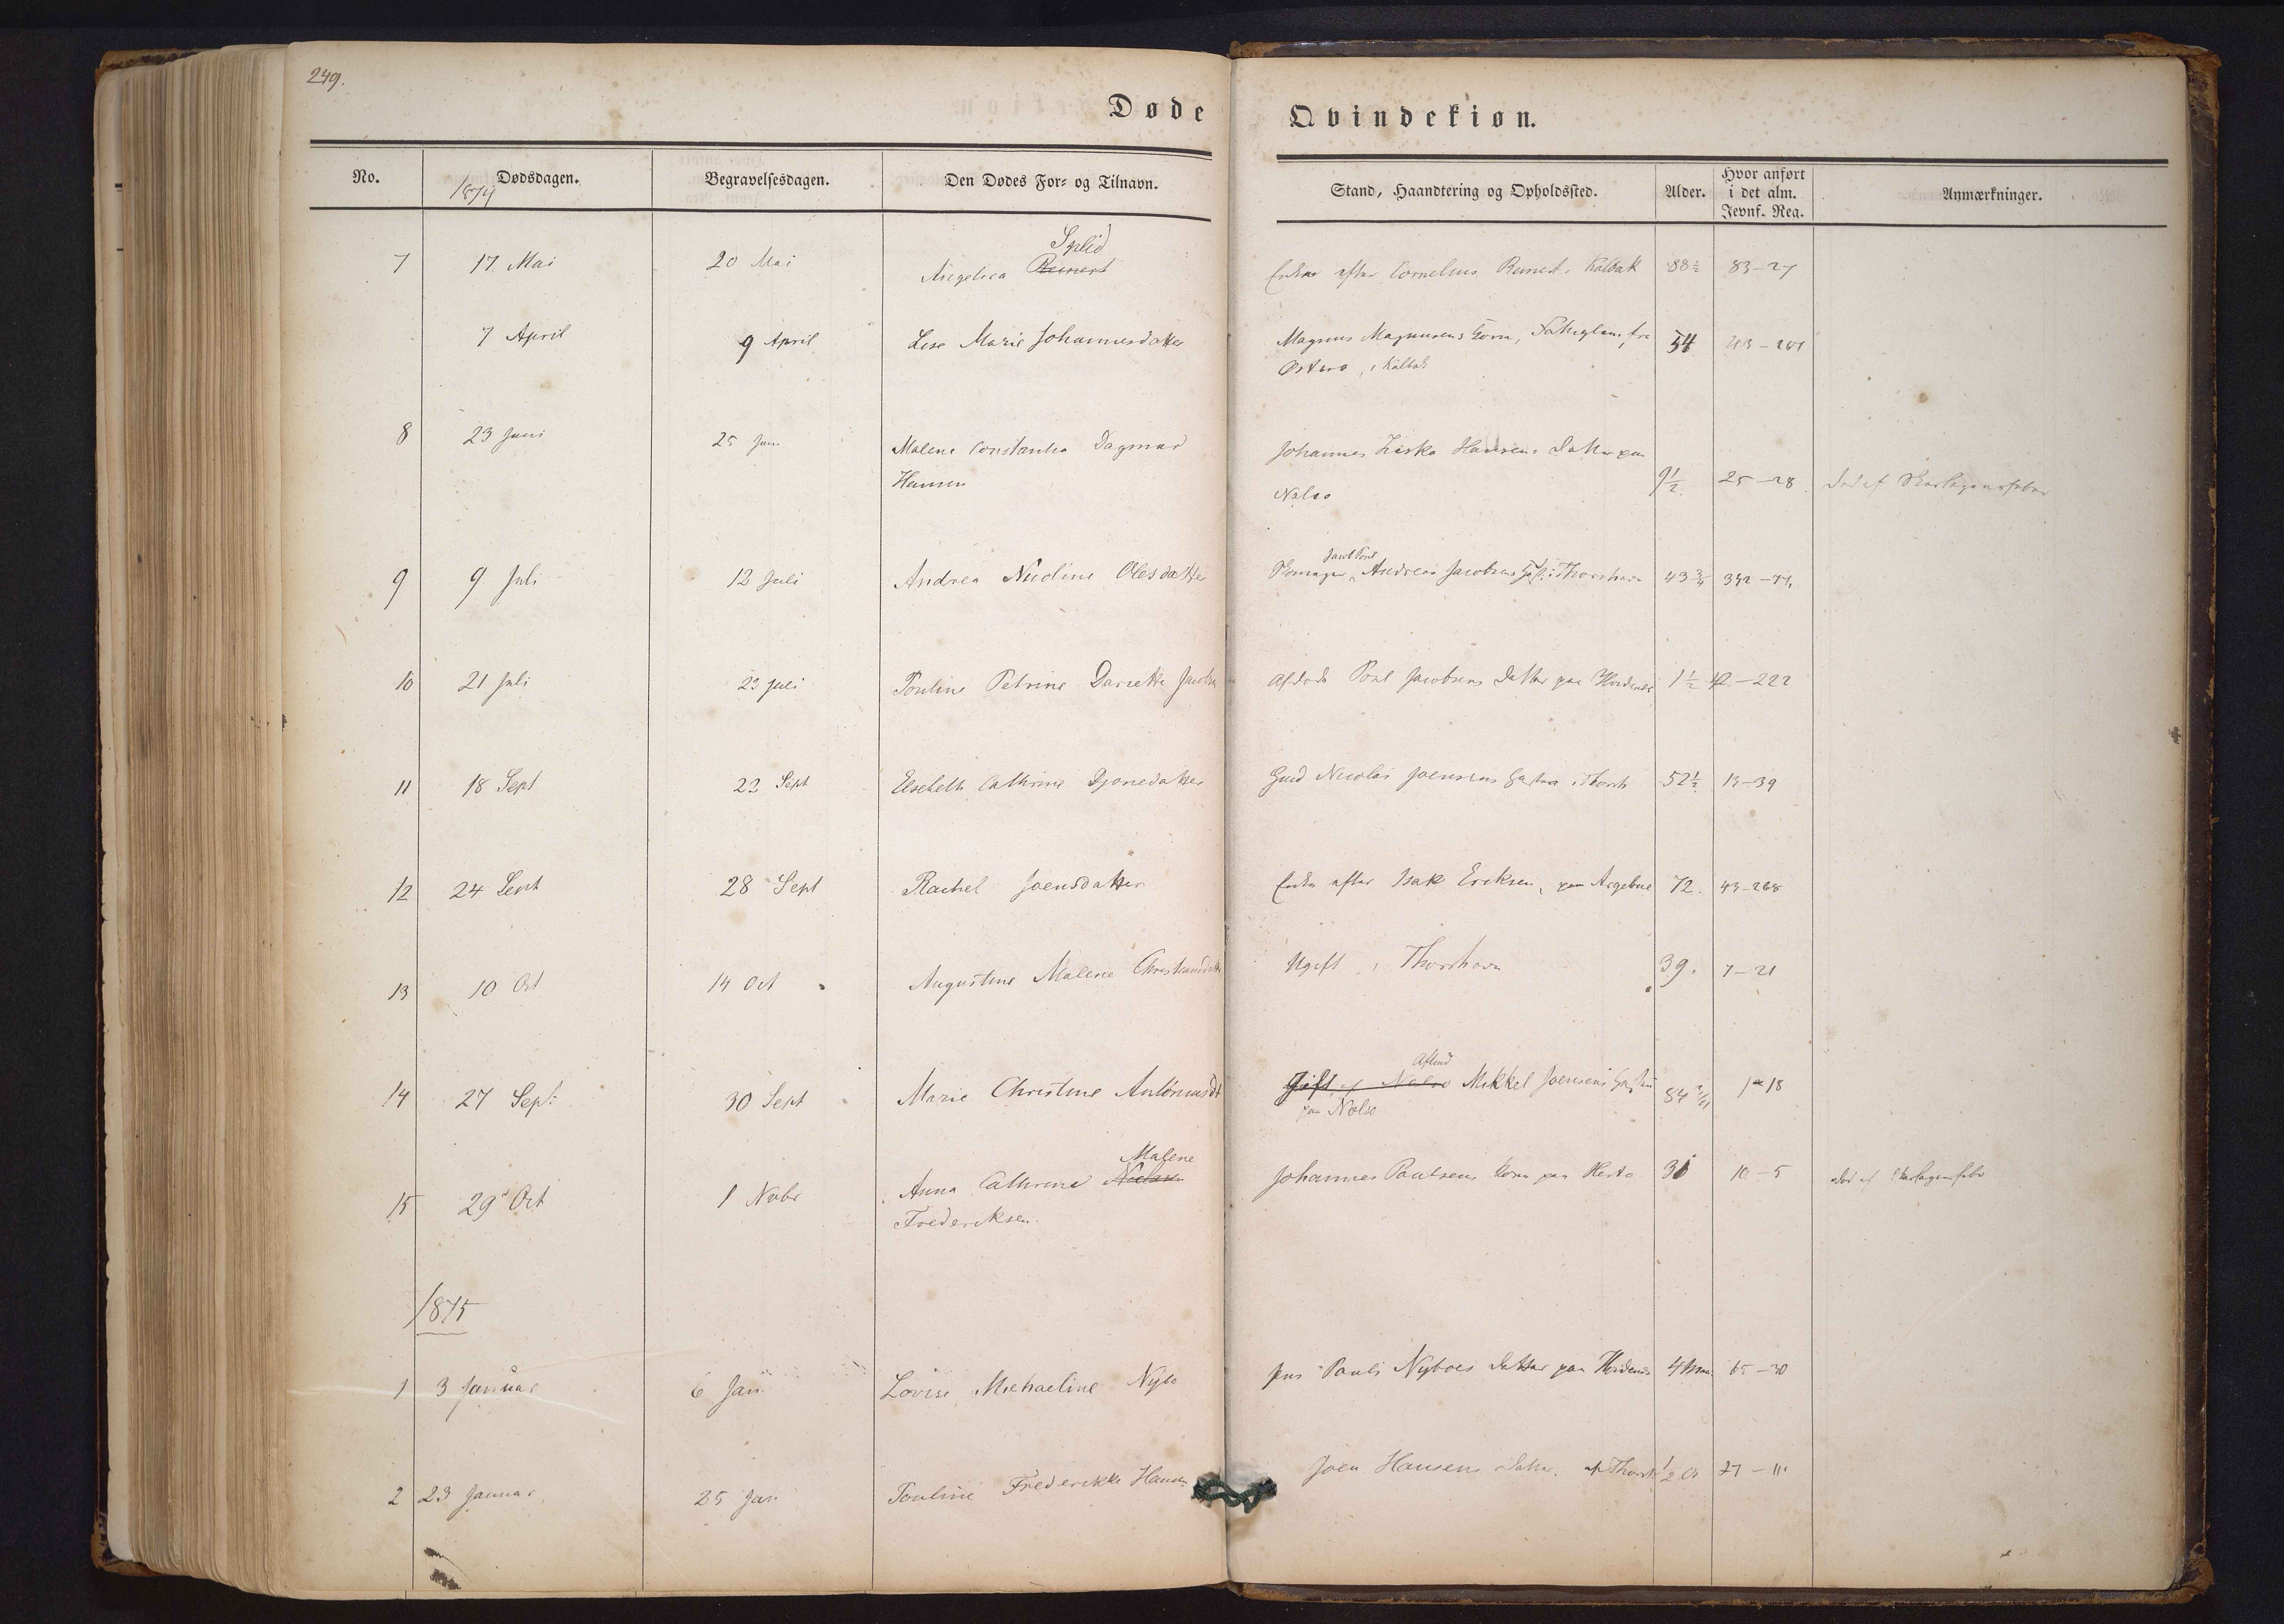 249.
Døde Qvindekiøn.
No. Dødsdagen. Begravelsesdagen. Den Dødes For- og Tilnavn. Stand, Haandtering og Opholdssted. Alder. Hvor anført i det alm. Jevnf. Reg. Anmærkninger.
1874
Splid
7 17 Mai 20 Mai Angelica Reinert Enke efter Cornelius Reinert i Kalbak 88½ 83-27
7 April 9 April Lise Marie Johannesdatter Magnus Magnusens Kone, fra 54
Østerø, i Kalbak
8 23 Juni 25 Jun Malene Constantia Dagmar Johannes Ziska Hansens Datter paa
Hansen Nalsø 9½ 25-28 Død af Skarlagensfeber
Jacob Poul
9 9 Juli 12 Juli Andrea Nicoline Olesdatter Andreas Jacobsens i Thorshavn 43¾ 392-
10 21 Juli 23 Juli Pouline Petrine Jacobsen Afdøde Poul Jacobsens Datter paa 1½ 42-222
11 18 Sept 22 Sept Elsebeth Cathrine Djonedatter Nicolai Joensens Hustru i Thorsh 52½ 13-39
12 24 Sept 28 Sept Rachel Joensdatter Enke efter Isak Ericksen, paa Argeboe 72. 43-268
13 10 Oct 14 Oct Augustine Malene Christiansdatter Ugift, i Thorshavn 39. 7-21
Afdød
14 27 Sept 30 Sept Marie Christine Antoniusdt Gift af Nalsø Mikkel Joensens Hustru 84 1-18
paa Nolsø
Malene
15 29 Oct 1 Novbr Anna Cathrine Frederiksen Johannes Poulsens Kone paa Hestø 31 10-5 død af Skarlagensfebr
1875
1 3 Januar 6 Jan. Lovise Michaeline Nybo Jens Pauli Nyboes Datter paa 65-30
2 23 Januar 25 Jan Pouline Frederikke Hansen Joen Hansens Datter. af Thorsh ½ 27-11